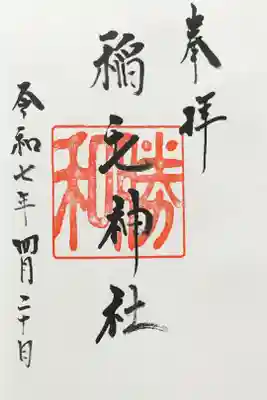 奉拝
稲毛神社
勝和
令和七年 四月二十日